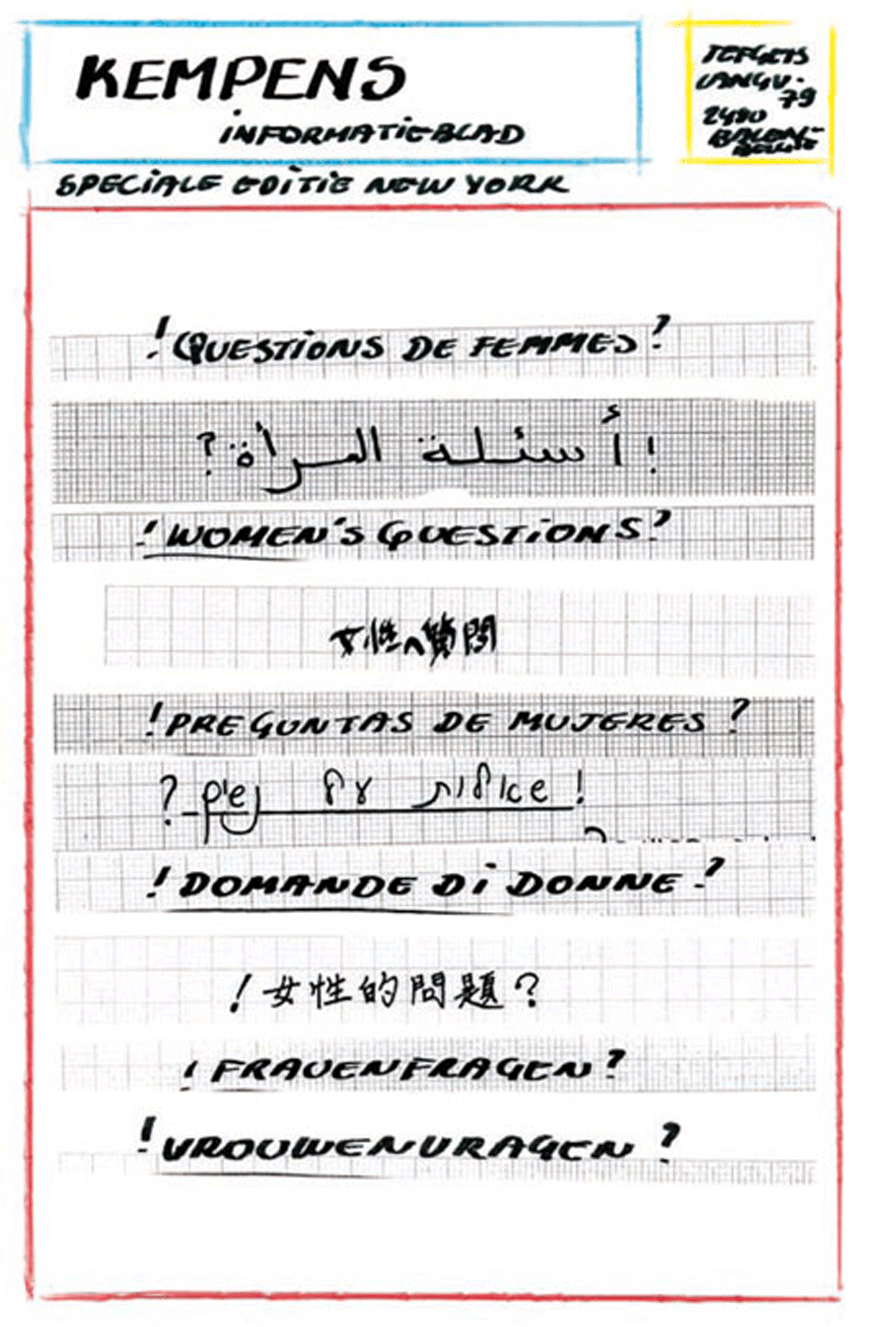 KEMPENS
INFORMATIEBLAD
JEF GEYS
LANGV.
79
2490
BALEN-
BELGIE
SPECIALE EDITIE NEW YORK
! QUESTIONS DE FEMMES ?
! أسئلة المرأة ?
! WOMEN'S QUESTIONS ?
女性へ質問
! PREGUNTAS DE MUJERES ?
! שאלות על נשים ?
! DOMANDE DI DONNE ?
! 女性的問題 ?
! FRAUENFRAGEN ?
! VROUWENVRAGEN ?